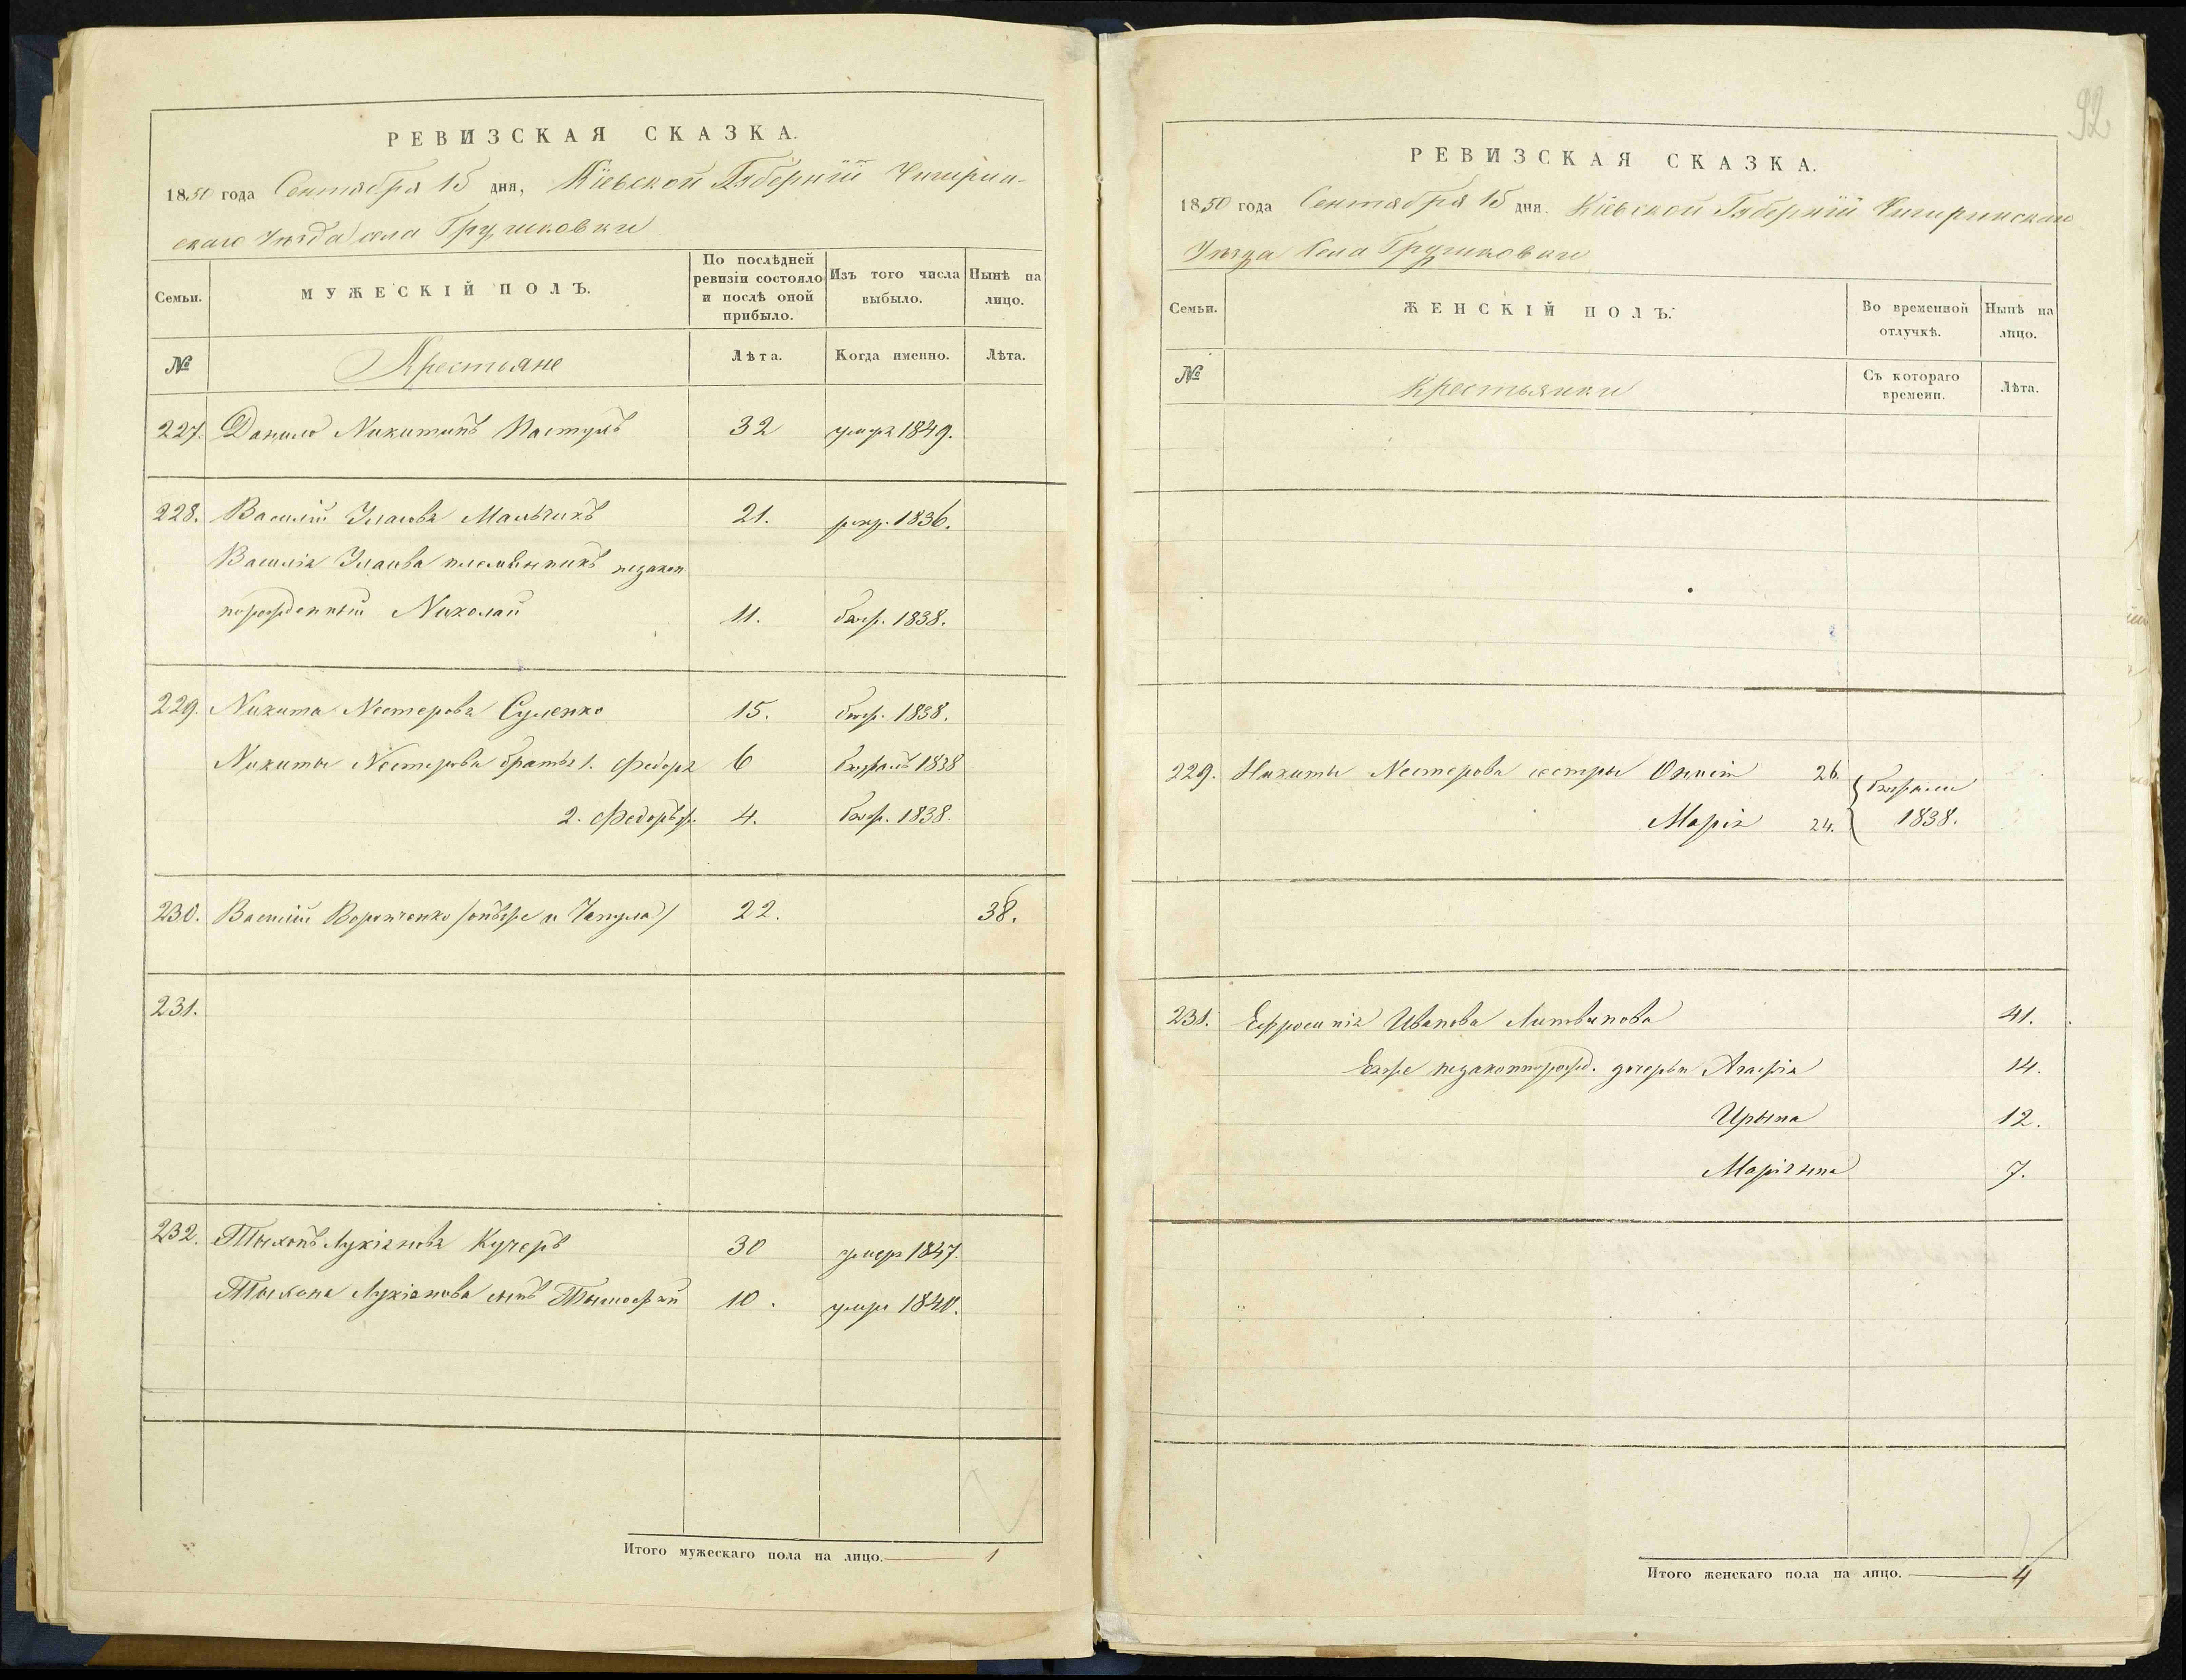 РЕВИЗСКАЯ СКАЗКА.
1850 года Сентября 15 дня, Кіевской Губерніи Чигирин-
скаго Уѣзда села Грушковки
Семьи.
МУЖЕСКІЙ ПОЛЪ.
По послѣдней ревизіи состояло и послѣ оной прибыло.
Изъ того числа выбыло.
Нынѣ на лицо.
№
Крестьяне
Лѣта.
Когда именно.
Лѣта.
227. Данило Никитинъ Пастухъ 32 умеръ 1849.
228. Василій Мальчикъ 21. рекр. 1836.
Василія племѣнникъ незакон
норожденный Николай 11. бѣж. 1838.
229. Никита Нестеровъ Суленко 15. бѣж. 1838.
Никиты Нестерова братья 1. Федоръ 6 бѣжалъ 1838
2. Федоръ 4. бѣж. 1838.
230. Василій Воронченко /онъ же и Чапула/ 22. 38.
231.
232. Тыхонъ Лукіяновъ Кучеръ 30 умеръ 1847.
Тыхона Лукіянова сынъ Тымофей 10. умеръ 1840.
Итого мужескаго пола на лицо. 1
92
РЕВИЗСКАЯ СКАЗКА.
1850 года Сентября 15 дня. Кіевской Губерніи Чигиринскаго
Уѣзда Села Грушковки
Семьи.
ЖЕНСКІЙ ПОЛЪ.
Во временной отлучкѣ.
Нынѣ на лицо.
№
Крестьянки
Съ котораго времени.
Лѣта.
229. Никиты Нестерова сестры 26. бѣжали
Марія 24. 1838.
231. Ефросинія Иванова Литвинова 41.
Ея же незаконнорожд. дочери Агафія 14.
Ирына 12.
Маріяна 7.
Итого женскаго пола на лицо. 4